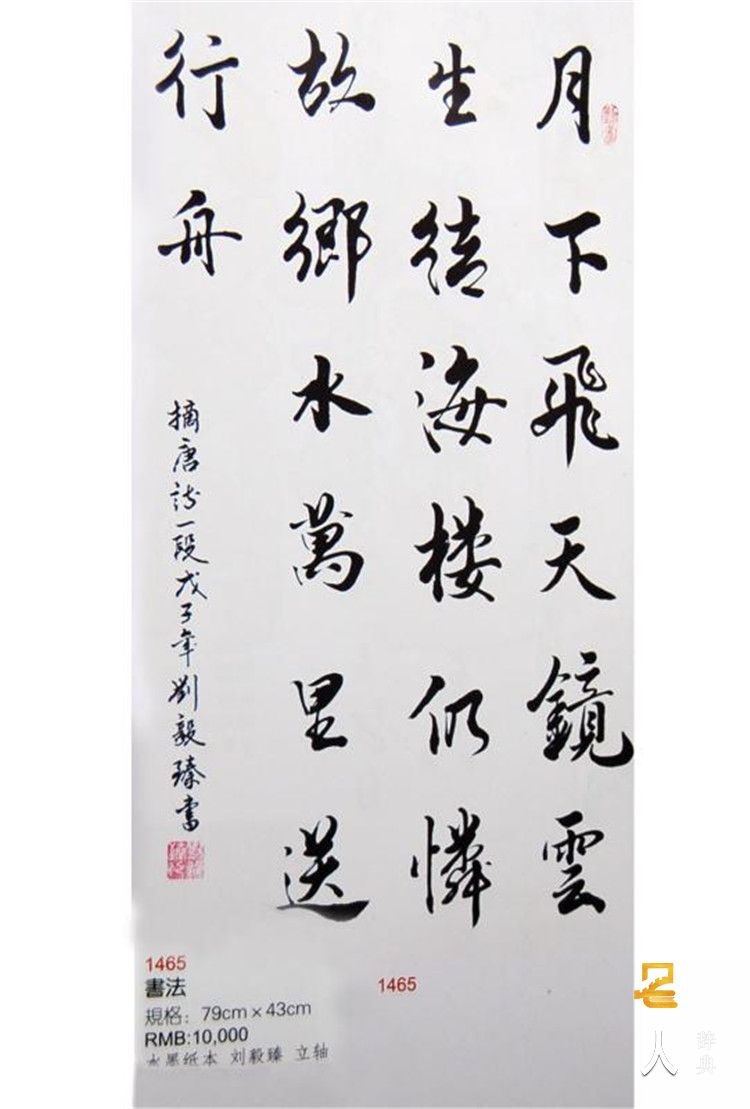 月下飛天鏡雲
生结海楼仍憐
故鄉水萬里送
行舟
摘唐詩一段戊子年劉毅臻書
1465
書法
規格：79cm×43cm
RMB:10,000
水墨纸本 刘毅臻 立轴
1465
人
辞典